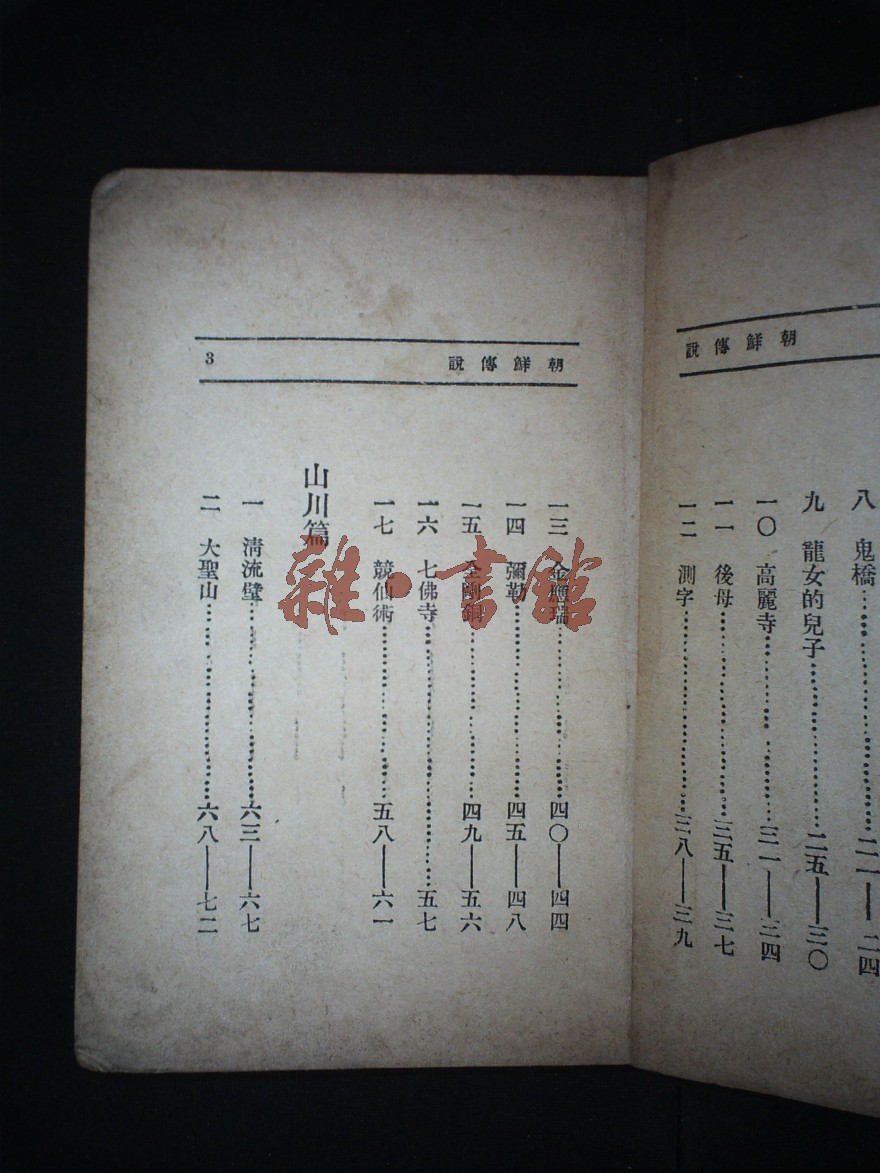 朝鮮傳說
八 鬼橋 二一——二四
九 龍女的兒子 二五——三〇
一〇 高麗寺 三一——三四
一一 後母 三五——三七
一二 測字 三八——三九
朝鮮傳說 3
一三 金應瑞 四〇——四四
一四 彌勒 四五——四八
一五 金剛 四九——五六
一六 七佛寺 五七
一七 競仙術 五八——六一
山川篇
一 清流壁 六三——六七
二 大聖山 六八——七二
雜·書館